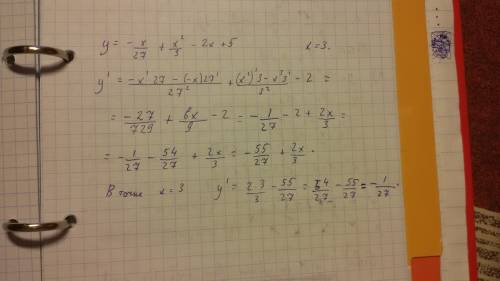 y = -x/27 + x²/3 - 2x + 5 x = 3.
y' = (-x'27 - (-x)27')/27² + ((x²)'3 - x²3')/3² - 2 =
= -27/729 + 6x/9 - 2 = -1/27 - 2 + 2x/3 =
= -1/27 - 54/27 + 2x/3 = -55/27 + 2x/3.
В точке x = 3 y' = 2·3/3 - 55/27 = 54/27 - 55/27 = -1/27.